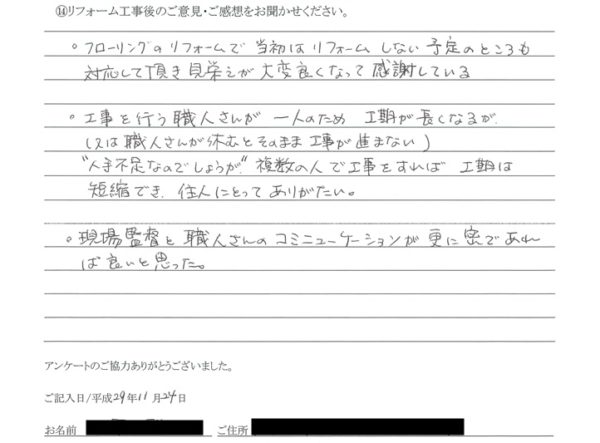 ⑭リフォーム工事後のご意見・ご感想をお聞かせください。
。フローリングのリフォームで当初はリフォームしない予定のところも
対応して頂き見栄えが大変良くなって感謝している
。工事を行う職人さんが一人のため工期が長くなるが、
(又は職人さんが休むとそのまま工事が進まない)
"人手不足なのでしょうが"複数の人で工事をすれば工期は
短縮でき、住人にとってありがたい。
。現場監督と職人さんのコミニューケーションが更に密であれ
ば良いと思った。
アンケートのご協力ありがとうございました。
ご記入日/平成29年11月24日
お名前 ご住所